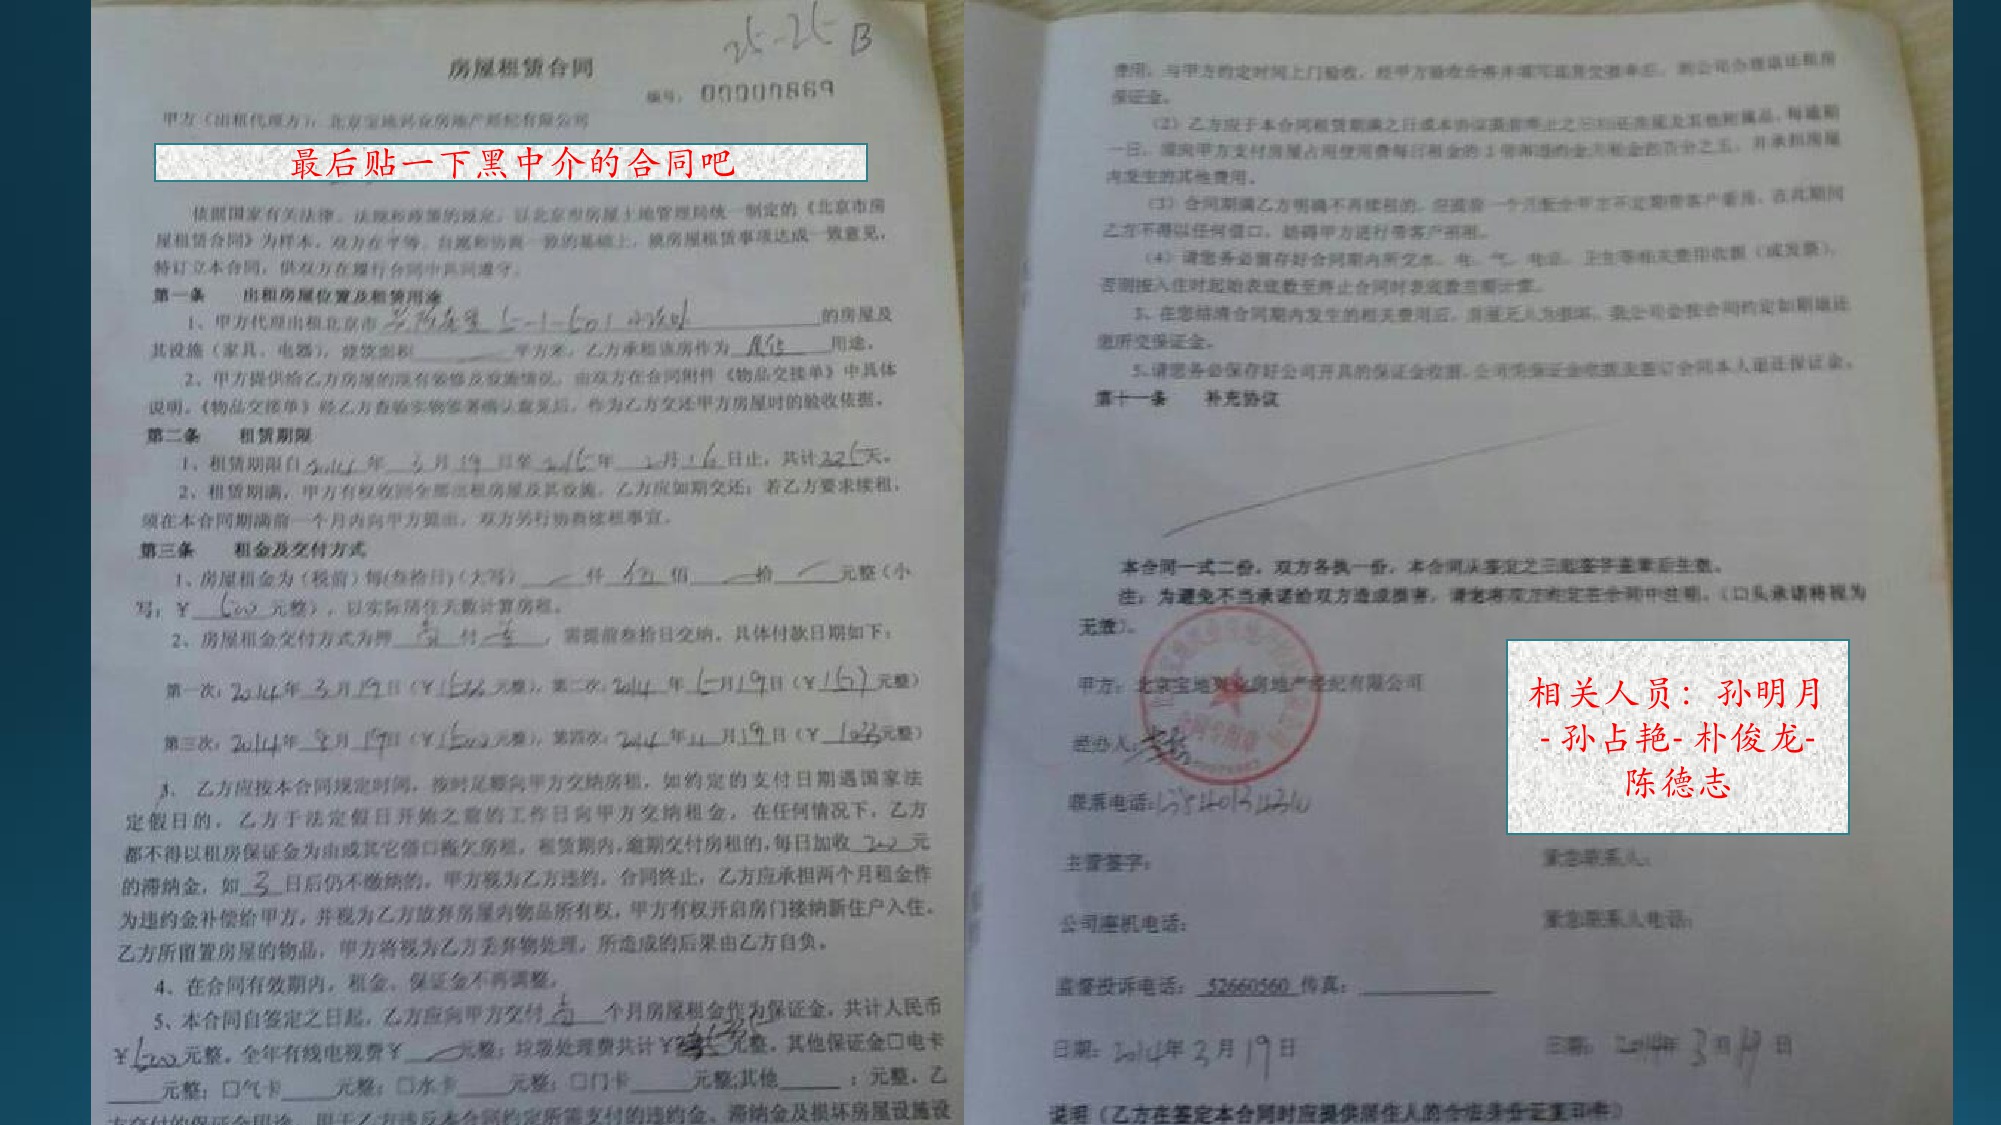 房屋租赁合同
编号: 00000869
甲方（出租代理方）：北京宝地兴业房地产经纪有限公司
最后贴一下黑中介的合同吧
依据国家有关法律、法规和政策的规定，以北京市房屋土地管理局统一制定的《北京市房
屋租赁合同》为样本，双方在平等、自愿和协商一致的基础上，就房屋租赁事项达成一致意见，
特订立本合同，供双方在履行合同中共同遵守。
第一条 出租房屋位置及租赁用途
1、甲方代理出租北京市 5-1-601 的房屋及
其设施（家具、电器），建筑面积 平方米，乙方承租该房作为 居住 用途。
2、甲方提供给乙方房屋的现有装修及设施情况，由双方在合同附件《物品交接单》中具体
说明，《物品交接单》经乙方查验实物签署确认意见后，作为乙方交还甲方房屋时的验收依据。
第二条 租赁期限
1、租赁期限自 2014 年 3 月 19 日至 2015 年 2 月 16 日止，共计 天。
2、租赁期满，甲方有权收回全部出租房屋及其设施，乙方应如期交还；若乙方要求续租，
须在本合同期满前一个月内向甲方提出，双方另行协商续租事宜。
第三条 租金及交付方式
1、房屋租金为（税前）每(叁拾日)（大写） 仟 伍 佰 拾 元整（小
写：¥ 500 元整），以实际居住天数计算房租。
2、房屋租金交付方式为押 付 ，需提前叁拾日交纳，具体付款日期如下：
第一次：2014 年 3 月 19 日（¥ 元整），第二次：2014 年 5 月 19 日（¥ 元整）
第三次：2014 年 8 月 19 日（¥ 1500 元整），第四次：2014 年 11 月 19 日（¥ 元整）
3、乙方应按本合同规定时间，按时足额向甲方交纳房租，如约定的支付日期遇国家法
定假日的，乙方于法定假日开始之前的工作日向甲方交纳租金，在任何情况下，乙方
都不得以租房保证金为由或其它借口拖欠房租，租赁期内，逾期交付房租的，每日加收 200 元
的滞纳金，如 3 日后仍不缴纳的，甲方视为乙方违约，合同终止，乙方应承担两个月租金作
为违约金补偿给甲方，并视为乙方放弃房屋内物品所有权，甲方有权开启房门接纳新住户入住，
乙方所留置房屋的物品，甲方将视为乙方丢弃物处理，所造成的后果由乙方自负。
4、在合同有效期内，租金、保证金不再调整。
5、本合同自签定之日起，乙方应向甲方交付 个月房屋租金作为保证金，共计人民币
¥ 500 元整，全年有线电视费¥ 元整；垃圾处理费共计¥ 元整，其他保证金□电卡
元整；□气卡 元整；□水卡 元整；□门卡 元整;其他 ；元整，乙
方交付的保证金用途，用于乙方违反本合同约定所需支付的违约金、滞纳金及损坏房屋设施设
费用，与甲方约定时间上门验收，经甲方验收合格并
保证金。
（2）乙方应于本合同租赁期满之日或本协议
一日，需向甲方支付房屋占用使用费每日租金的
内发生的其他费用。
（3）合同期满乙方明确不再续租的，应提前一个月配合甲方不定期带客户看房，在此期间
乙方不得以任何借口，妨碍甲方进行带客户看房。
（4）请您务必留存好合同期内所交水、电、气、电话、卫生等相关费用收据（或发票），
否则按入住时起始表底数至终止合同时表底数全额计算。
3、在您结清合同期内发生的相关费用后，房屋无人为损坏，我公司会按合同约定如期退还
您所交保证金。
5、请您务必保存好公司开具的保证金收据，公司凭保证金收据及签订合同本人退还保证金。
第十一条 补充协议
本合同一式二份，双方各执一份，本合同从签定之日起签字盖章后生效。
注：为避免不当承诺给双方造成损害，请您将双方约定在合同中注明，（口头承诺将视为
无效）。
甲方：北京宝地兴业房地产经纪有限公司
合同专用章
经办人：
相关人员：孙明月
- 孙占艳- 朴俊龙-
陈德志
联系电话：
主管签字： 紧急联系人：
公司座机电话： 紧急联系人电话：
监督投诉电话： 52660560 传真：
日期：2014年 3 月 19 日 日期：2014年 3 月 19 日
说明（乙方在签定本合同时应提供居住人的合法身份证复印件）